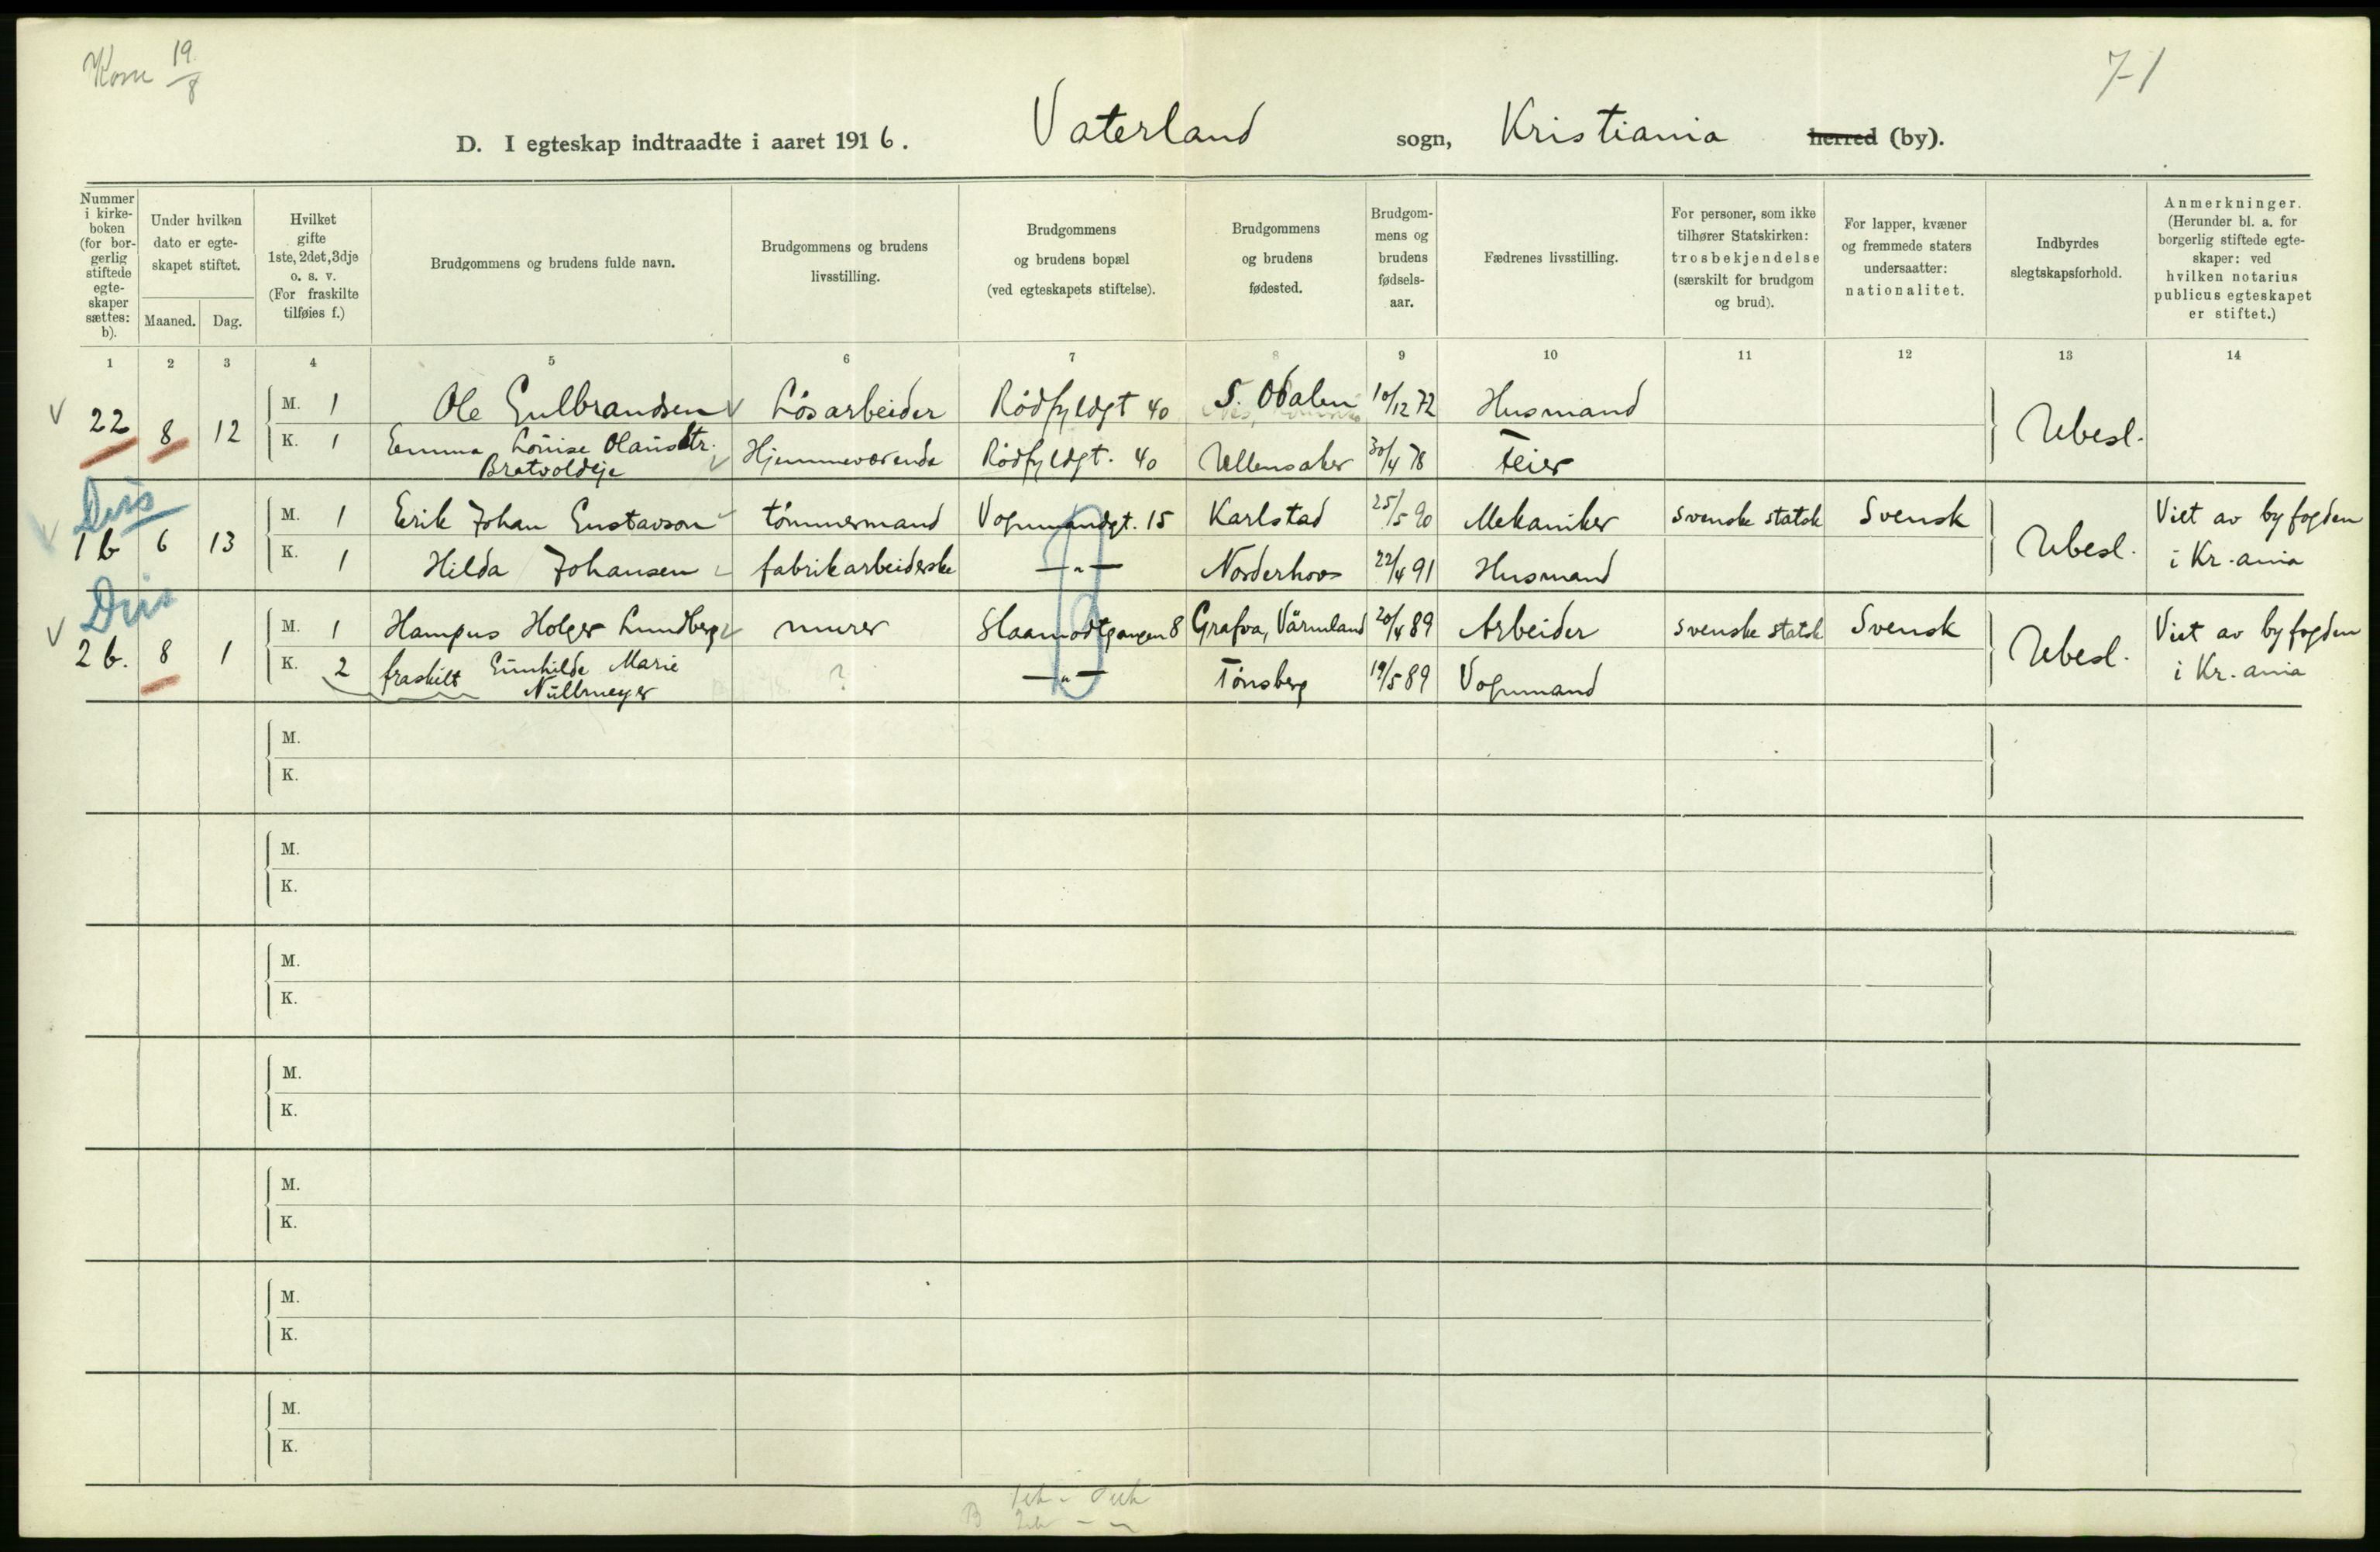 Kom 19/8
71
D. I egteskap indtraadte i aaret 1916. Vaterland sogn, Kristiania herred (by).
Nummer i kirke-boken (for bor-gerlig stiftede egte-skaper sættes: b).
Under hvilken dato er egte-skapet stiftet.
Maaned. Dag.
Hvilket gifte 1ste, 2det, 3dje o. s. v. (For fraskilte tilføies f.)
Brudgommens og brudens fulde navn.
Brudgommens og brudens livsstilling.
Brudgommens og brudens bopæl (ved egteskapets stiftelse).
Brudgommens og brudens fødested.
Brudgom-mens og brudens fødsels-aar.
Fædrenes livsstilling.
For personer, som ikke tilhører Statskirken: trosbekjendelse (særskilt for brudgom og brud).
For lapper, kvæner og fremmede staters undersaatter: nationalitet.
Indbyrdes slegtskapsforhold.
Anmerkninger. (Herunder bl. a. for borgerlig stiftede egte-skaper: ved hvilken notarius publicus egteskapet er stiftet.)
1 2 3 4 5 6 7 8 9 10 11 12 13 14
22 8 12 M. 1 Ole Gulbrandsen Løsarbeider Rødfyldgt 40 S. Odalen 10/12 72 Husmand Ubesl.
K. 1 Emma Louise Olausdtr. Hjemmeværende Rødfyldgt. 40 Ullensaker 30/4 78 Feier
Bratvoldeje
Dis
1 b 6 13 M. 1 Erik Johan Gustavson tømmermand Vognmandgt. 15 Karlstad 25/5 90 Mekaniker svenske statsk Svensk Ubesl. Viet av byfogden
K. 1 Hilda Johansen fabrikarbeiderske —„— Norderhov 22/4 91 Husmand i Kr.ania
Dis
2 b. 8 1 M. 1 Hampus Holger Lundberg murer Slaamodtgangen 8 Grafva, Värmland 20/4 89 Arbeider svenske statsk Svensk Ubesl. Viet av byfogden
K. 2 fraskilt Gunhilde Marie ? —„— Tønsberg 19/5 89 Vognmand i Kr.ania
Nullmeyer
M.
K.
M.
K.
M.
K.
M.
K.
M.
K.
M.
K.
M.
K.
B